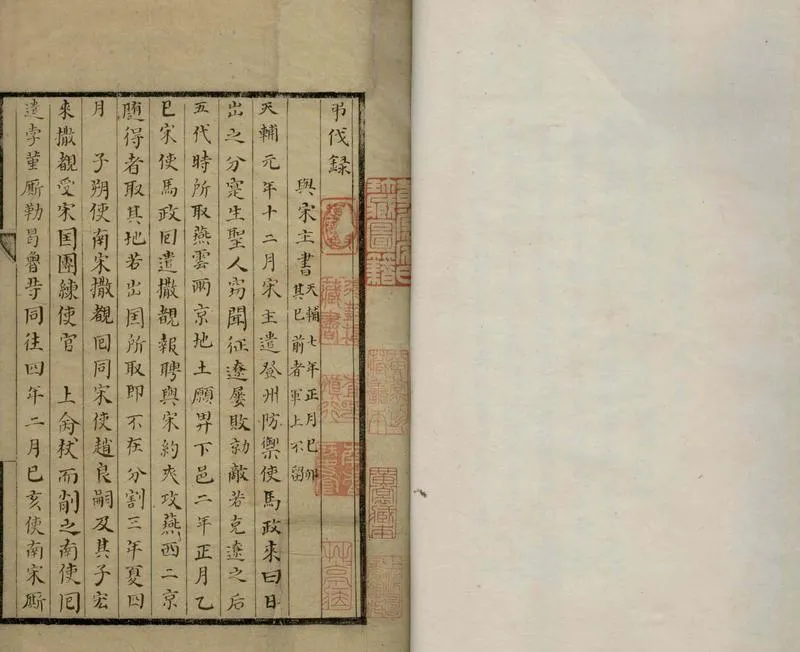 弔伐録
與宋主書 天輔七年正月己卯
其已前者軍上不留
天輔元年十二月宋主遣登州防禦使馬政來曰日
出之分寔生聖人竊聞征遼屢敗勍敵若克遼之後
五代時所取燕雲兩京地土願畀下邑二年正月乙
巳宋使馬政囘遣撒覩報聘與宋約夾攻燕西二京
随得者取其地若出囯所取即不在分割三年夏四
月 子朔使南宋撒覩囘同宋使趙良嗣及其子宏
來撒覩受宋囯團練使官 上侖杖而削之南使囘
遣孛菫厮勒曷魯等同往四年二月己亥使南宋厮
圖籍
藏書